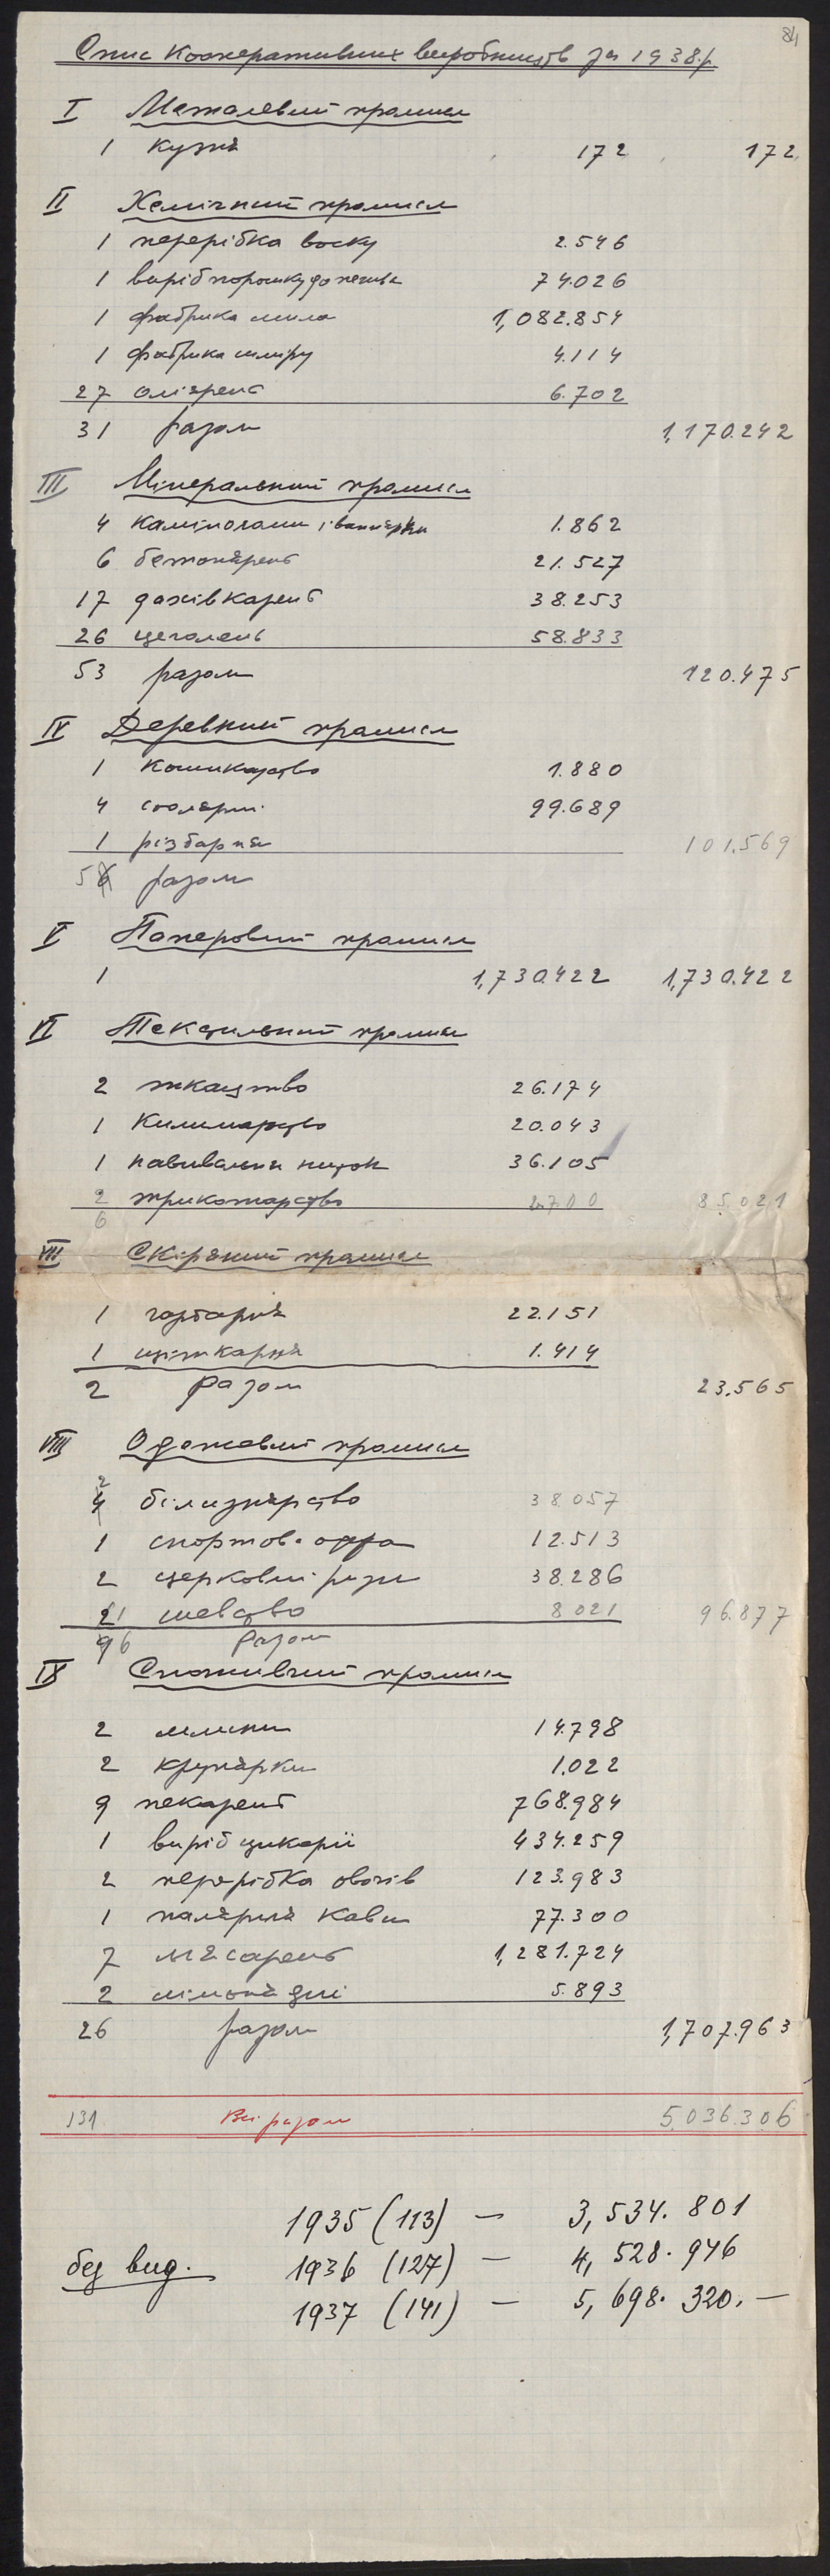 84
Спис Кооперативних виробництв за 1938.р
I Металевий промисл
1 кузня 172 172
II Хемічний промисл
1 перерібка воску 2.546
1 виріб порошку до печива 74.026
1 фабрика мила 1,082.854
1 фабрика шміру 4.114
27 оліярень 6.702
31 разом 1,170.242
III Мінеральний промисл
4 каміноломи і вапнярки 1.862
6 бетонярень 21.527
17 дахівкарень 38.253
26 цеголень 58.833
53 разом 120.475
IV Деревний промисл
1 кошикарство 1.880
4 столярні 99.689
1 різбарня 101.569
5 6 разом
V Паперовий промисл
1 1,730.422 1,730.422
VI Текстильний промисл
2 ткацтво 26.174
1 Килимарство 20.043
1 навивальня ниток 36.105
2 трикотарство 2.700 85.021
6
VII Скіряний промисл
1 гарбарня 22.151
1 щіткарня 1.414
2 разом 23.565
VIII Одежевий промисл
2
4 білизнярство 38.057
1 спортов. 12.513
2 церковні ризи 38.286
1 шевство 8021 96.877
6 Разом
IX Споживчий промисл
2 млини 14.798
2 крупярки 1.022
9 пекарень 768.984
1 виріб цикорії 434.259
2 перерібка овочів 123.983
1 палярня кави 77.300
7 мясарень 1,281.724
2 5.893
26 разом 1,707.963
131 Всі разом 5.036.306
1935 (113) — 3,534.801
без вид. 1936 (127) — 4,528.946
1937 (141) — 5,698.320.—